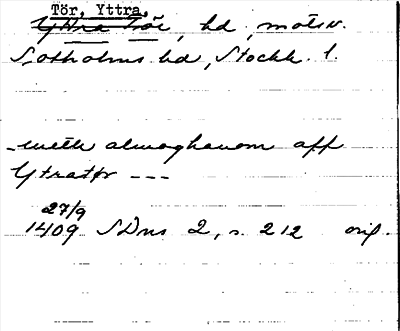 Tör, Yttra,
Yttra Tör, hd, motsv.
Sotholms hd, Stockh. l.
-meth almoghanom aff
Ytratør ---
27/9
1409 SDns 2, s. 212 orig.